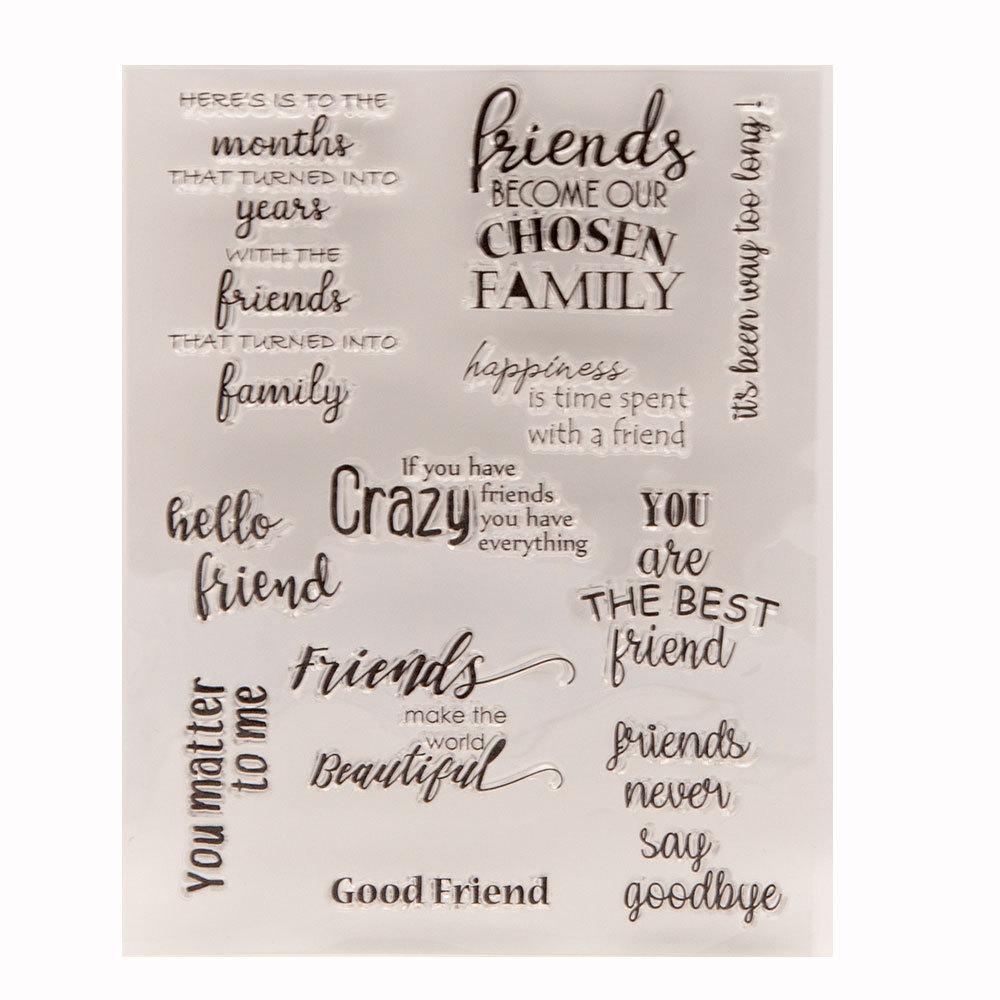 HERE'S IS TO THE
months
THAT TURNED INTO
years
WITH THE
friends
THAT TURNED INTO
family
friends
BECOME OUR
CHOSEN
FAMILY
it's been way too long!
happiness
is time spent
with a friend
If you have
Crazy
friends
you have
everything
hello
friend
YOU
are
THE BEST
friend
Friends
make the
world
Beautiful
You matter
to me
friends
never
say
goodbye
Good Friend